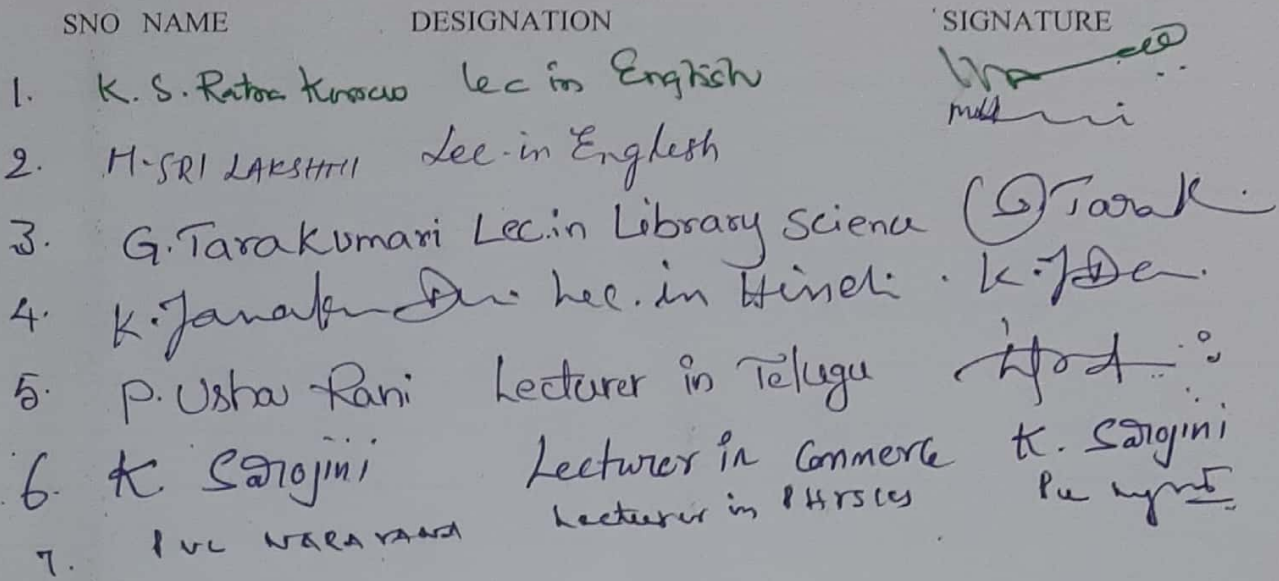 SNO NAME DESIGNATION SIGNATURE
1. K. S. Ratna Kumari Lec in English
2. M. SRI LAKSHMI Lec. in English
3. G. Tarakumari Lec. in Library Science G Tarak.
4. K. Janaki Devi Lec. in Hindi. K. J De
5. P. Usha Rani Lecturer in Telugu
6. K. Sarojini Lecturer in Commerce K. Sarojini
7. PVL NARAYANA Lecturer in PHYSICS